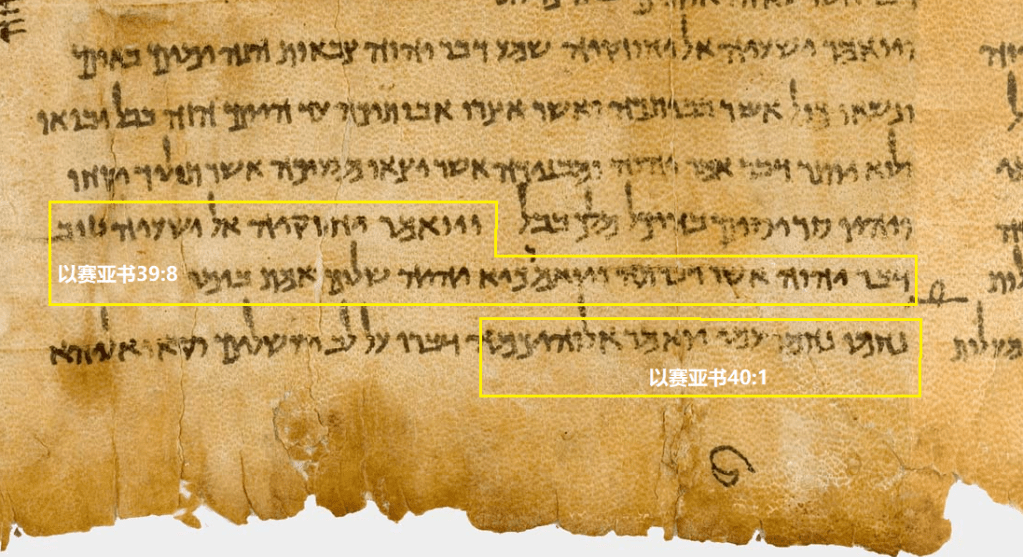 ויואמר ישעיה אל יחוזקיה שמע דבר יהוה צבאות הנה ימים באים
ונשאו כול אשר בביתכה ואשר אצרו אבותיכה עד היום הזה בבל יבואו
ולא יותר דבר אמר יהוה ומבניכה אשר יצאו ממעיכה אשר תוליד יקחו
והיו סריסים בהיכל מלך בבל ויואמר יחזקיה אל ישעיה טוב
以赛亚书39:8
דבר יהוה אשר דברתה ויואמר כיא יהיה שלום אמת בימי
נחמו נחמו עמי יואמר אלוהיכמה דברו על לב ירושלים וקראו אליה
以赛亚书40:1